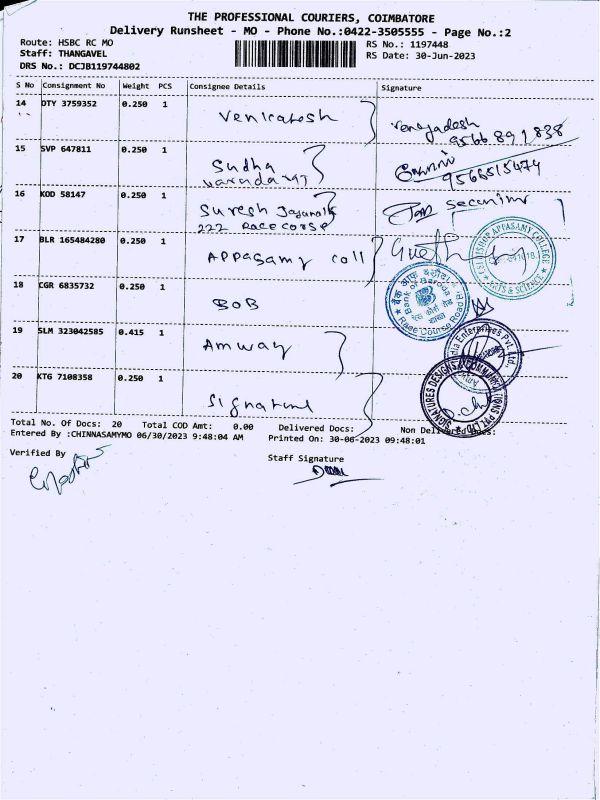 THE PROFESSIONAL COURIERS, COIMBATORE
Delivery Runsheet - MO - Phone No.:0422-3505555 - Page No.:2
Route: HSBC RC MO
RS No.: 1197448
Staff: THANGAVEL
RS Date: 30-Jun-2023
DRS No.: DCJB119744802
S No Consignment No Weight PCS Consignee Details Signature
14 DTY 3759352 0.250 1 Venkatesh
9566 891 838
15 SVP 647811 0.250 1 Sudha
9566515474
16 KOD 58147 0.250 1 Suresh
222 Racecorse
17 BLR 165484280 0.250 1 Appasamy coll
18 CGR 6835732 0.250 1 BOB
Bank of Baroda
Race Course Road
19 SLM 323042585 0.415 1 Amway
India Enterprises Pvt. Ltd.
20 KTG 7108358 0.250 1 Signature
Total No. Of Docs: 20 Total COD Amt: 0.00 Delivered Docs: Non Delivered Docs:
Entered By :CHINNASAMYMO 06/30/2023 9:48:04 AM Printed On: 30-06-2023 09:48:01
Verified By
Staff Signature